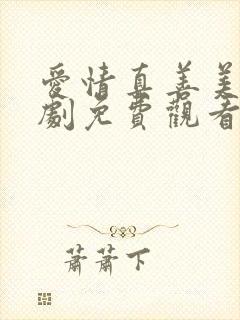 愛情真善美
劇免費觀看
蕭蕭下